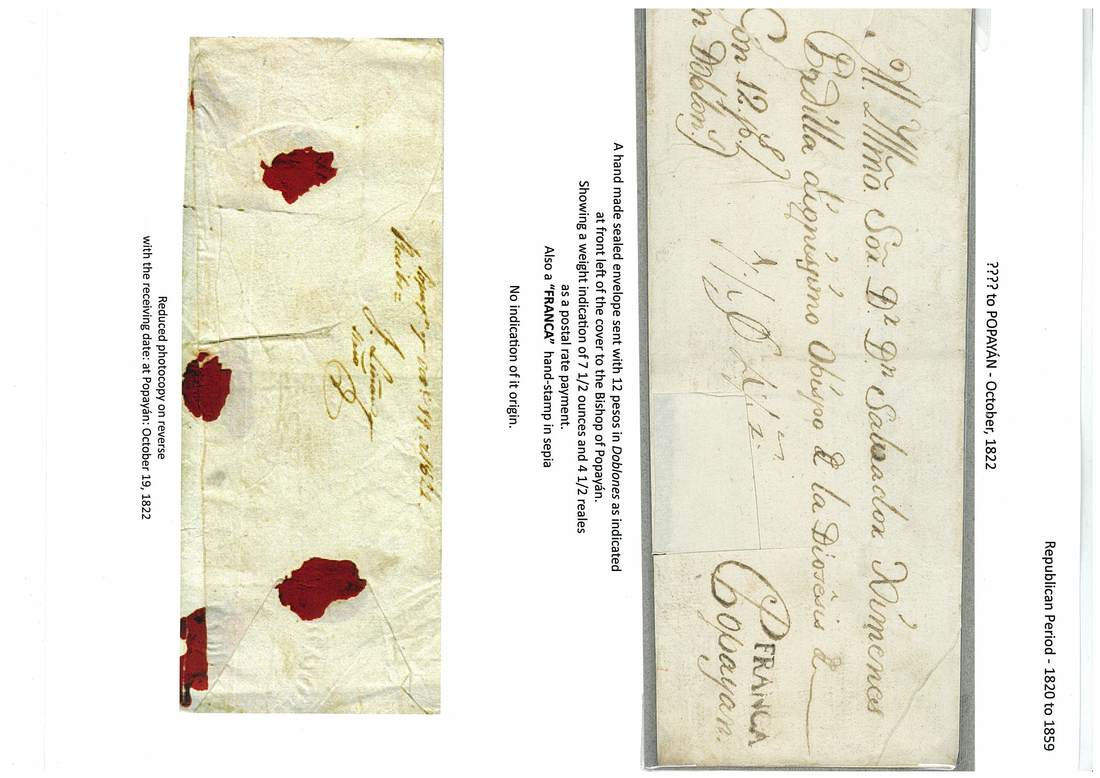 Republican Period - 1820 to 1859
???? to POPAYÁN - October, 1822
Al Yllmo. Sõr. Dr. Dn. Salvador Ximenes
Padilla dignisimo Obispo de la Diosèsis de
Popayan.
Con 12. ps.
en Doblon.s
FRANCA
A hand made sealed envelope sent with 12 pesos in Doblones as indicated
at front left of the cover to the Bishop of Popayán.
Showing a weight indication of 7 1/2 ounces and 4 1/2 reales
as a postal rate payment.
Also a "FRANCA" hand-stamp in sepia
No indication of it origin.
Reduced photocopy on reverse
with the receiving date: at Popayán: October 19, 1822